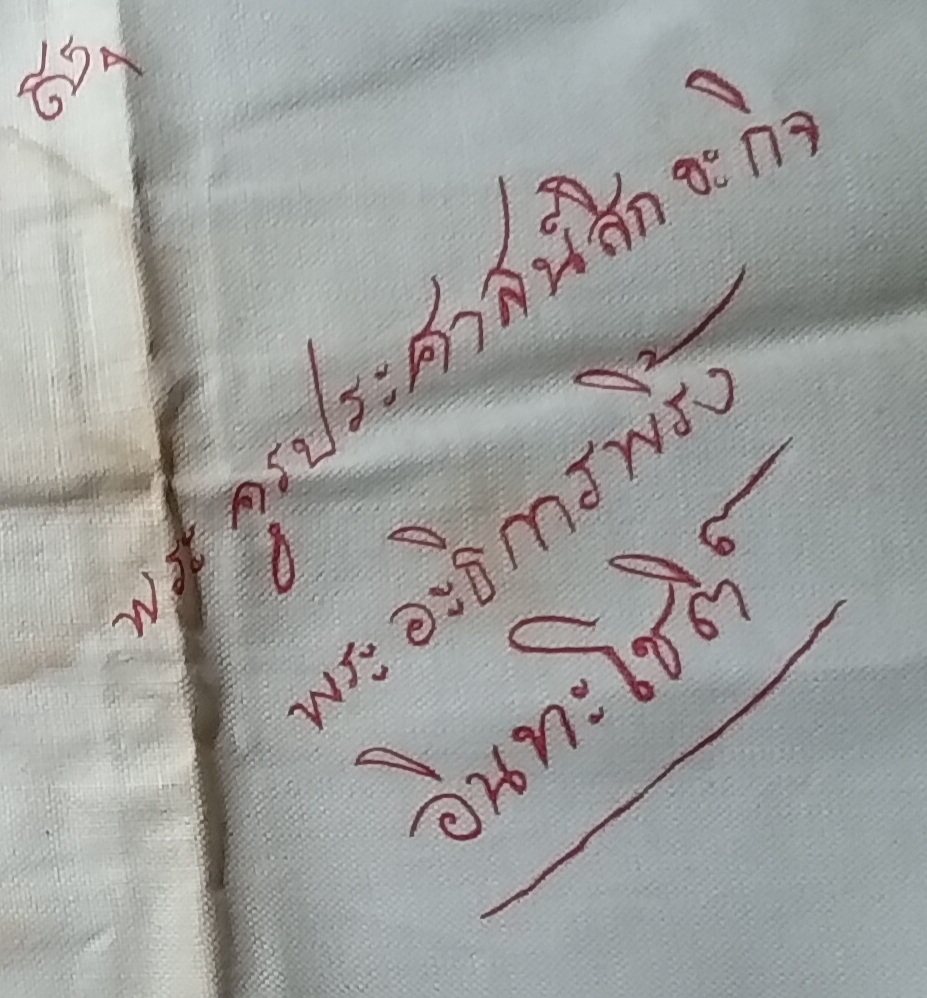 พระครูประศาสน์สิกขะกิจ
พระอะธิการพริ้ง
อินทะโชติ์